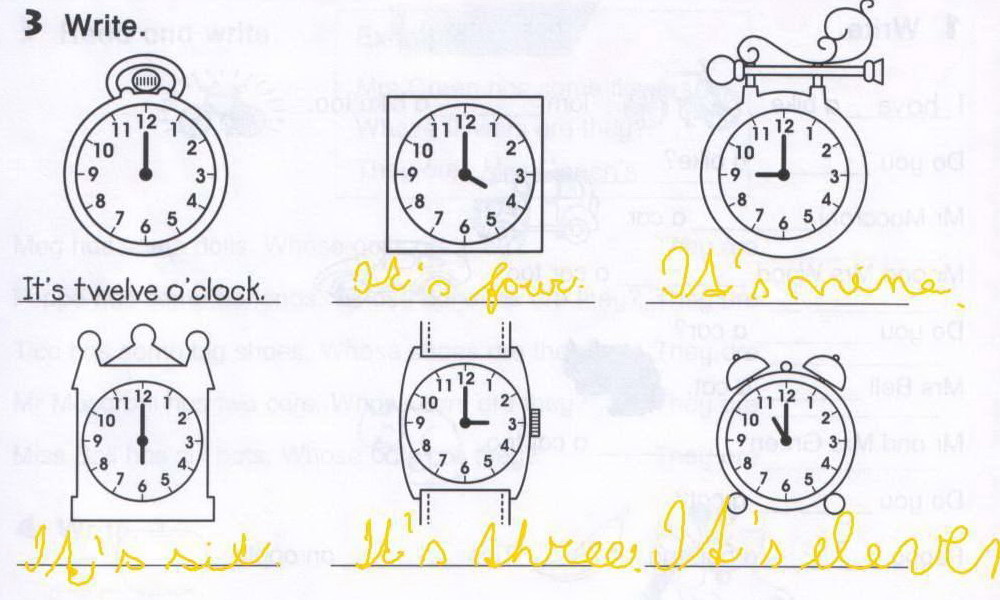 3 Write.
12 1 2 3 4 5 6 7 8 9 10 11
12 1 2 3 4 5 6 7 8 9 10 11
12 1 2 3 4 5 6 7 8 9 10 11
It's twelve o'clock.
It's four.
It's nine.
12 1 2 3 4 5 6 7 8 9 10 11
12 1 2 3 4 5 6 7 8 9 10 11
12 1 2 3 4 5 6 7 8 9 10 11
It's six.
It's three.
It's eleven